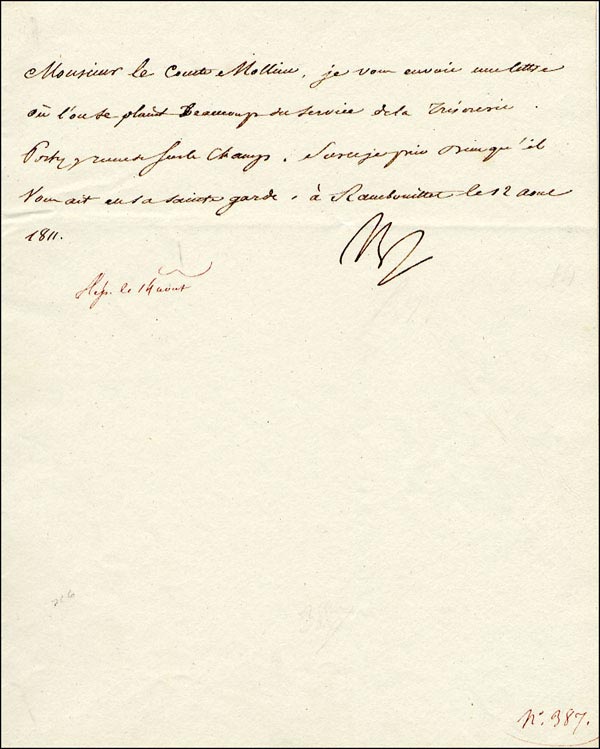 Monsieur le Comte Mollien, je vous envoie une lettre
où l'on se plaint beaucoup du service de la Trésorerie.
Portez y remede sur le Champ. Sur ce je prie Dieu qu'il
Vous ait en sa sainte garde. à Rambouillet le 12 aout
1811.
Rep. le 14 aout
N.º 387.